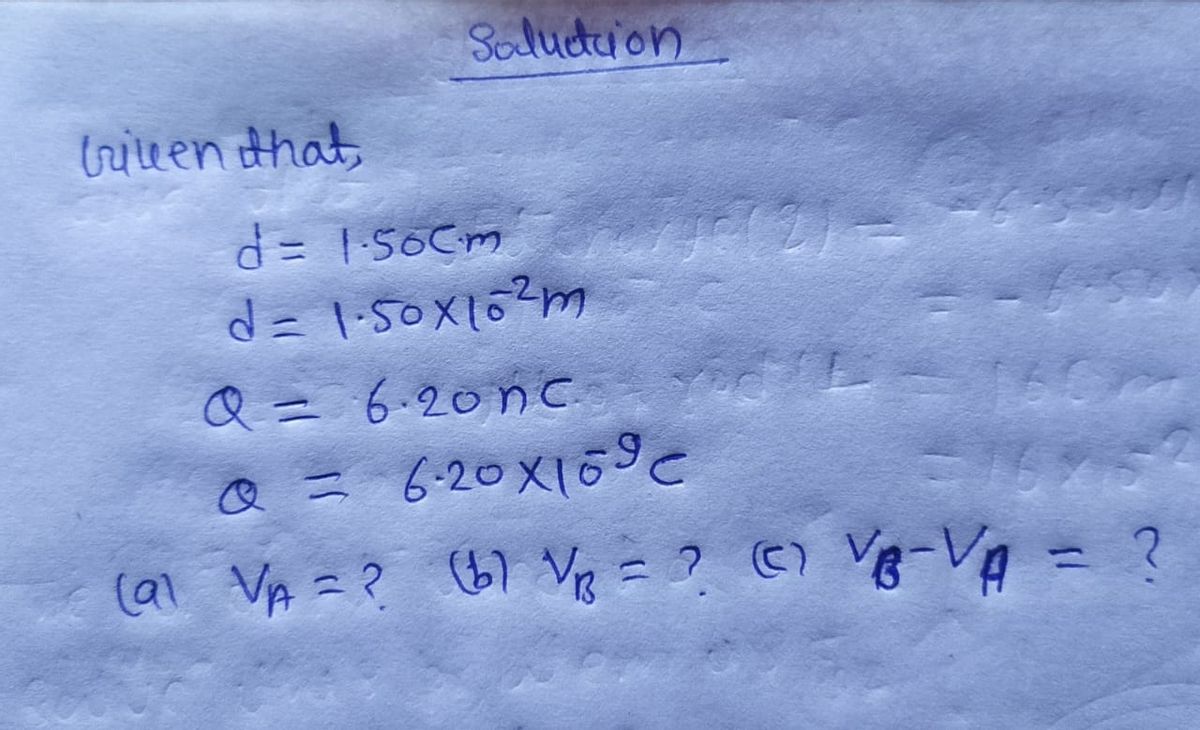 Solution
Given that,
d = 1.50cm
d = 1.50×10⁻²m
Q = 6.20nC
Q = 6.20×10⁻⁹C
(a) V_A = ? (b) V_B = ? (c) V_B-V_A = ?